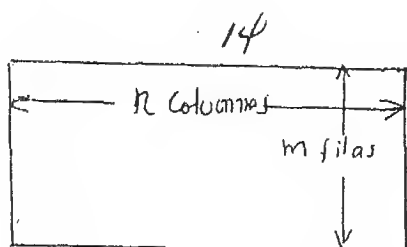 14
n Columnas
m filas